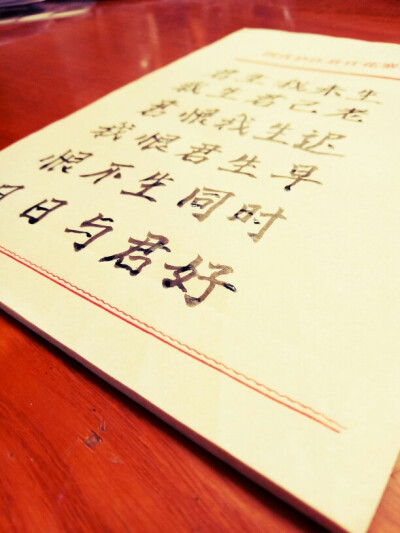 君生我未生
我生君已老
君恨我生迟
我恨君生早
恨不生同时
日日与君好